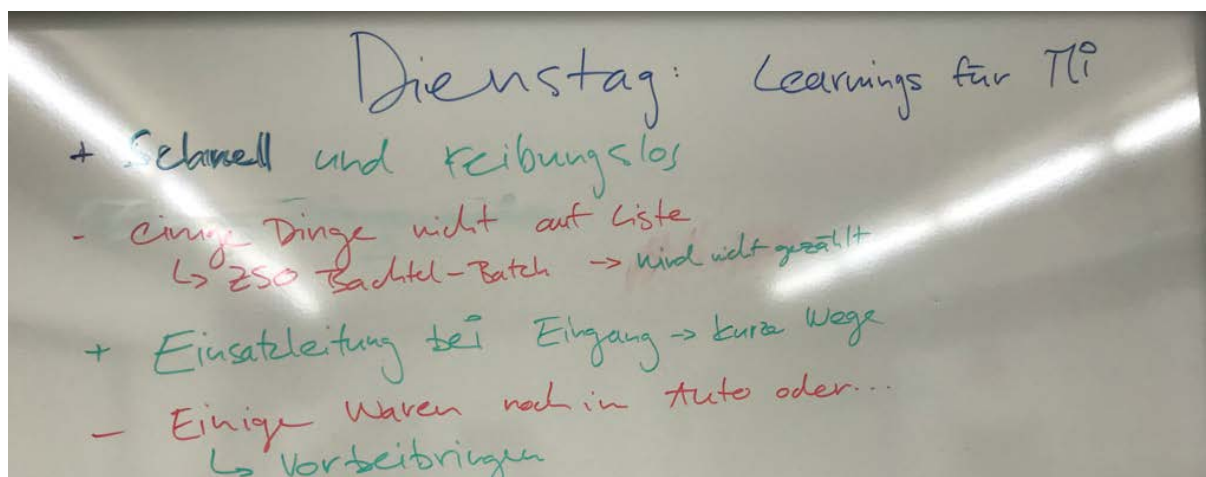 Dienstag: Learnings für Mi
+ Schnell und reibungslos
- einige Dinge nicht auf Liste
↳ ZSO Bachtel-Batch → wird nicht gezählt
+ Einsatzleitung bei Eingang → kurze Wege
- Einige Waren noch in Auto oder...
↳ Vorbeibringen